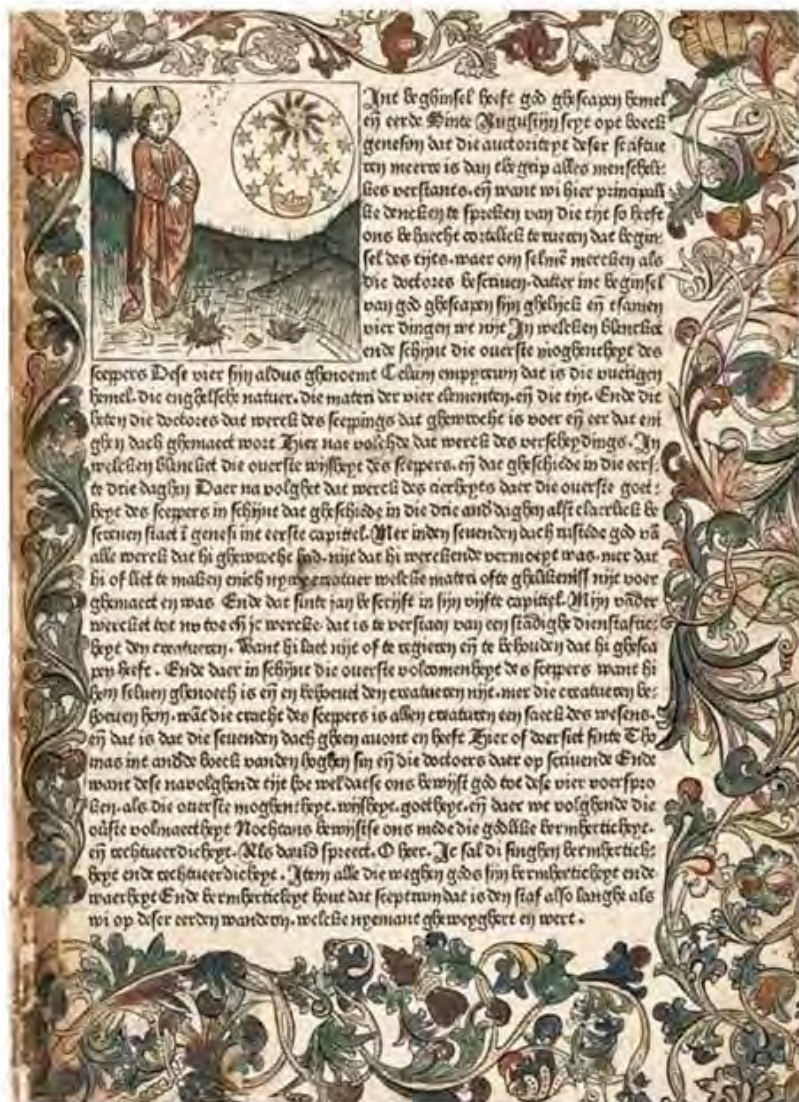 Int beghinsel heeft god ghescapen hemel
eñ eerde Sinte Augustijn seyt opt boeck
genesim dat die auctoriteyt deser scriftue
ren meerre is dan tbegrip alles menscheli:
kes verstants. eñ want wi hier principali
ke dencken te spreken van die tijt so heeft
ons behaecht cortelick te rueren dat begin:
sel des tijts. waer om selmē mercken als
die doctores bescriuen. datter int beghinsel
van god ghescapen sijn ghelijck eñ tsamen
vier dingen wt nijt In welcken blincket
ende schijnt die ouerste moghentheyt des
sceppers Dese vier sijn aldus ghenoemt Celum empyreum dat is die vuerigen
hemel. die enghelsche natuer. die materi der vier elementen. eñ die tijt. Ende dit
heten die doctores dat werck des sceppings dat ghewrocht is voer eñ eer dat eni
ghen dach ghemaect wort Hier nae volchde dat werck des verscheydings. In
welcken blincket die ouerste wijsheyt des sceppers. eñ dat gheschiede in die eers:
te drie daghen Daer na volghet dat werck des cierheyts daer die ouerste goet:
heyt des sceppers in schijnt dat gheschiede in die drie and daghen alst claerlick be
screuen staet ī genesi int eerste capittel. Mer inden seuenden dach rustēde god vā
alle werck dat hi ghewrocht had. nijt dat hi werckende vermoeyt was. mer dat
hi of liet te maken enich nywe creatuer welcke materi ofte ghelikeniss nijt voer
ghemaect en was. Ende dat sinte jan bescrijft in sijn vijfte capittel. Mijn vāder
wercket tot nv toe eñ ic wercke. dat is te verstaen van een stādighe dienstaftic:
heyt den creatueren. Want hi laet nijt of te regieren eñ te behouden dat hi ghesca
pen heeft. Ende daer in schijnt die ouerste volcomenheyt des sceppers want hi
hem seluen ghenoech is eñ en behoeuet den creatueren nijt. mer die creatueren be:
hoeuen hem. wāt die cracht des sceppers is allen creaturen een saeck des wesens.
eñ dat is dat die seuenden dach gheen auont en heeft Hier of doersiet sinte Tho
mas int andde boeck vanden hoghen sin eñ die doctoers daer op scriuende Ende
want dese navolghende tijt hoe wel datse ons bewijst god tot dese vier voerspro
ken. als die ouerste moghentheyt. wijsheyt. goetheyt. eñ daer wt volghende die
oūste volmaectheyt Nochtans bewijstse ons mede die gōdlike bermherticheyt.
eñ rechtuerdicheyt. Als dauid spreect. O heer. Ic sal di singhen bermhertich:
heyt ende rechtuerdicheyt. Item alle die weghen gods sijn bermherticheyt ende
waerheyt Ende bermherticheyt hout dat sceptrum dat is den staf also langhe als
wi op deser eerden wanderen. welcke nyemant gheweyghert en wert.